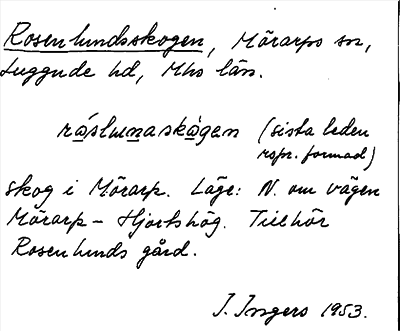 Rosenlundsskogen, Mörarps sn,
Luggude hd, Mhs län.
råslunaskågen (sista leden
rspr. formad)
skog i Mörarp. Läge: N. om vägen
Mörarp - Hjortshög. Tillhör
Rosenlunds gård.
J. Ingers 1953.